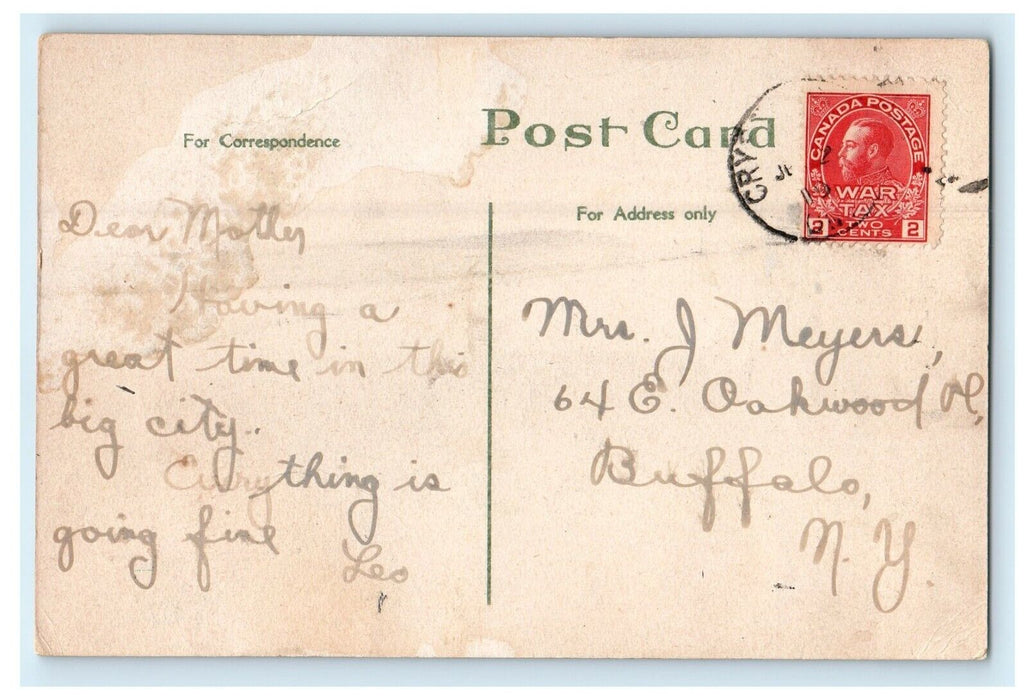 Post Card
For Correspondence
For Address only
CANADA POSTAGE
WAR
TAX
2 TWO CENTS 2
CRY
Dear Mother
Having a
great time in this
big city.
Everything is
going fine
Leo
Mrs. J Meyers,
64 E. Oakwood Pl,
Buffalo,
N. Y.